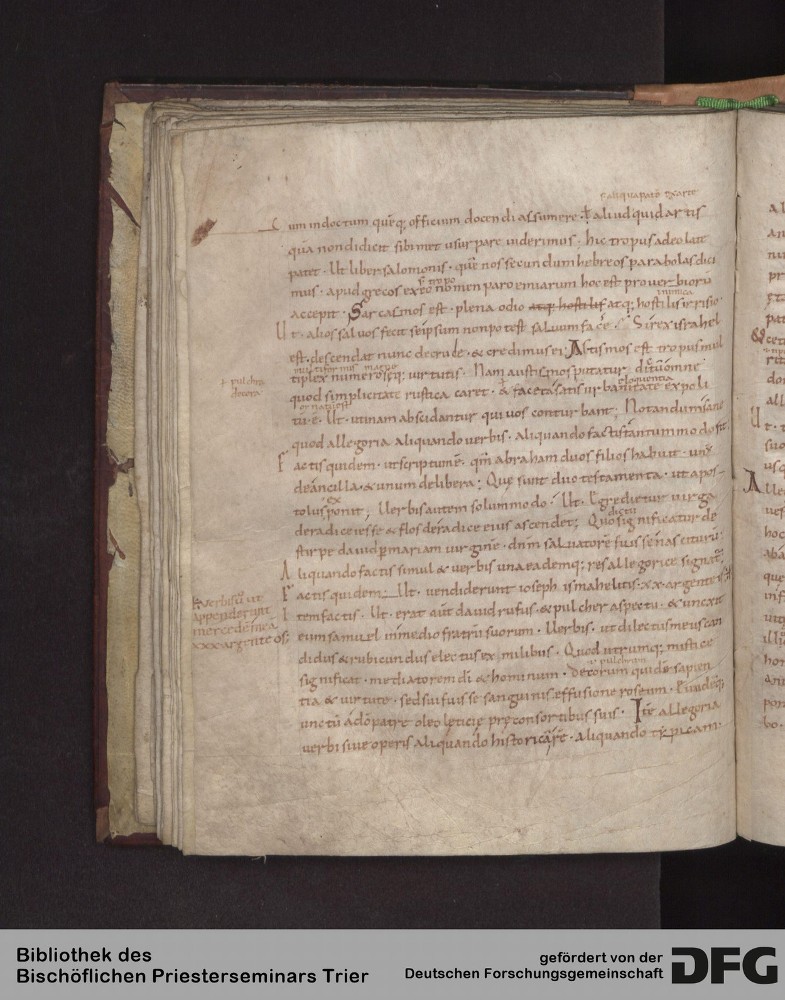 s. aliqua parte ex arte
Cum indoctum quęq; officium docendi assumere ł aliud quid artis
qua non didicit sibimet usurpare uiderimus. hic tropus adeo late
patet. Ut liber salomonis. quę nos secundum hebreos parabolas dici
mus. apud grecos ex eo nomen paroemiarum hoc est prouerbiorū
s. tropo
inimica
accepit. Sarcasmos est. plena odio atq; hostilis atq; hostilis irrisio
Ut. alios saluos fecit seipsum non potest saluum facere. Si rex israhel
est. descendat nunc de cruce. & credimus ei. Astismos est tropus mul
multiformis magno
tiplex numerosęq; uirtutis. Nam austismos putatur. dictū omne
ł pulchra
decora
quod simplicitate rustica caret. & faceta satis urbanitate expoli
eloquentia
ornatū est
tū ē. Ut. utinam abscidantur qui uos conturbant. Notandum sane
quod allegoria aliquando uerbis. aliquando factis tantummodo fit.
Factis quidem. ut scriptum ē. qm̄ abraham duos filios habuit. unū
de ancilla. & unum de libera; Quę sunt duo testamenta. ut apos-
tolus exponit; Uerbis autem solummodo. Ut. Egredietur uirga
dictū
de radice iesse & flos de radice eius ascendet; Quo significatur de
stirpe dauid p mariam uirginē. dnm saluatorē fuisse nasciturū.
Aliquando factis simul & uerbis una eademq; res allegorice signat̄.
Factis quidem. Ut. uendiderunt ioseph ismahelitis. xx. argenteis.
Uerbis ū ut
appenderunt
mercede mea
xxx argenteos;
Item factis. Ut. erat aūt dauid rufus. & pulcher aspectu. & unxit
eum samuel in medio fratrū suorum. Uerbis. ut dilectus meus can
didus & rubicundus electus ex milibus. Quod utrumq; mystice
significat. mediatorem di & hominum. decorum quidē sapien
ł pulchrum
tia & uirtute. sed sui fuisse sanguinis effusione roseum. Eundēq;
unctū a do patre oleo lęticię prę consortibus suis. Itē allegoria
uerbi siue operis aliquando historicā rē. aliquando typicam.
Bibliothek des
Bischöflichen Priesterseminars Trier
gefördert von der
Deutschen Forschungsgemeinschaft
DFG